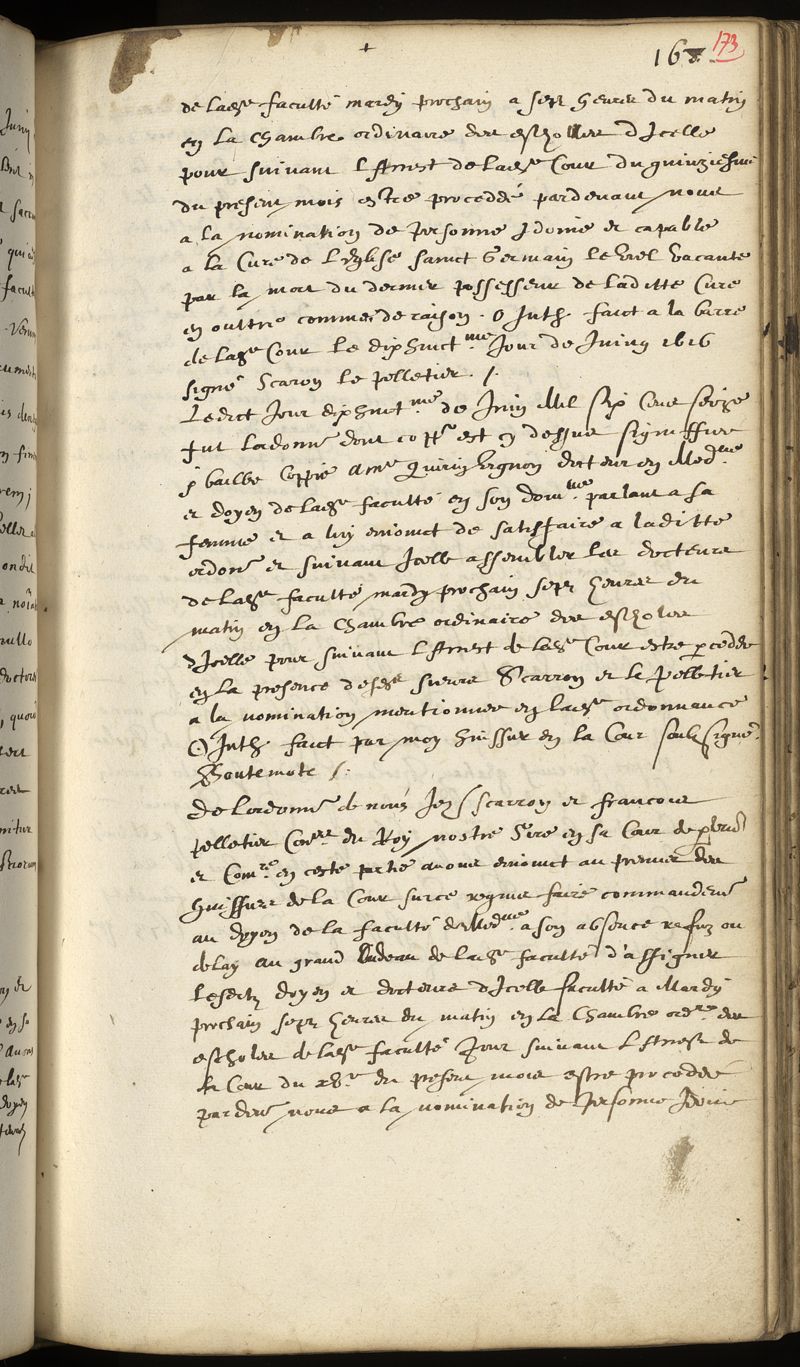 168 173
de lade faculté mardy prochain a sept heures du matin
en la chambre ordinaire des escholles d'Icelle
pour suivant l'Arrest de lade Cour du quinziesme
du present mois estre procedé pardevant nous
a la nomination de personne Idoine et capable
a la Cure de l'eglise sainct Germain le vieil vacante
par la mort du dernier possesseur de laditte Cure
en oultre comme de raison. faict a la barre
de lade Cour le dixhuictme Jour de Juing 1616
signé Scaron le pelletier ./.
Ledict Jour dixhuictme de Juin Mil six Cens seize
fut lordonne dont coppe est cy dessus signiffiee
& baillé Coppie a me Quirin Vignon docteur en Medne
et doyen de lade faculté en son domle parlant a sa
femme et a luy enjoinct de satisfaire a laditte
ordone et suivant Icelle assembler les docteurs
de lade faculté mardy prochain sept heures du
matin en la chambre ordinaire des escholes
d'Icelle pour suivant l'Arrest de lade Cour estre procedé
en la presence desde sieurs Scarron et le Pelletier
a la nomination mentionnee en lade ordonnance
faict par moy huissier en la Cour soubsigné
Boutemote /:
De lordonne de nous Jen Scarron et francois
pelletier Coners du Roy nostre Sire en sa Cour de
et Comres en ceste partie avons enjoinct au premier des
huissiers de la Cour sur ce requis faire commandemt
au doyen de la faculté de Medne a son absence refuz ou
delay au grand bedeau de lade faculté d'assigner
lesdictz doyen et docteurs d'Icelle faculté a Mardy
prochain sept heures du matin en la chambre ordre des
escholes de lade faculté pour suivant l'Arrest de
la Cour du xve du present mois estre procedé
pardevt nous a la nomination de personne Idoine